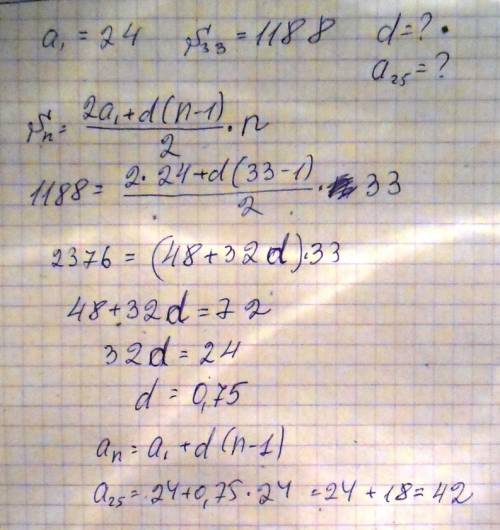 a₁ = 24 S₃₃ = 1188 d = ?
a₂₅ = ?
Sₙ = (2a₁ + d(n-1))/2 · n
1188 = (2 · 24 + d(33-1))/2 · 33
2376 = (48 + 32d) · 33
48 + 32d = 72
32d = 24
d = 0,75
aₙ = a₁ + d(n-1)
a₂₅ = 24 + 0,75 · 24 = 24 + 18 = 42